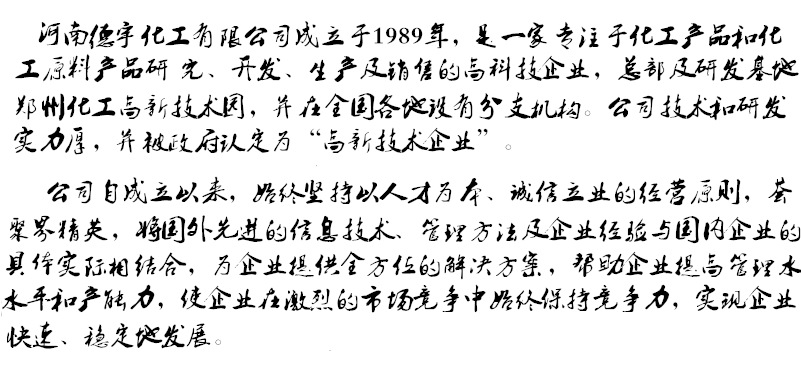 河南德宇化工有限公司成立于1989年，是一家专注于化工产品和化
工原料产品研究、开发、生产及销售的高科技企业，总部及研发基地
郑州化工高新技术园，并在全国各地设有分支机构。公司技术和研发
实力厚，并被政府认定为“高新技术企业”。
公司自成立以来，始终坚持以人才为本、诚信立业的经营原则，荟
聚界精英，将国外先进的信息技术、管理方法及企业经验与国内企业的
具体实际相结合，为企业提供全方位的解决方案，帮助企业提高管理水
水平和产能力，使企业在激烈的市场竞争中始终保持竞争力，实现企业
快速、稳定地发展。